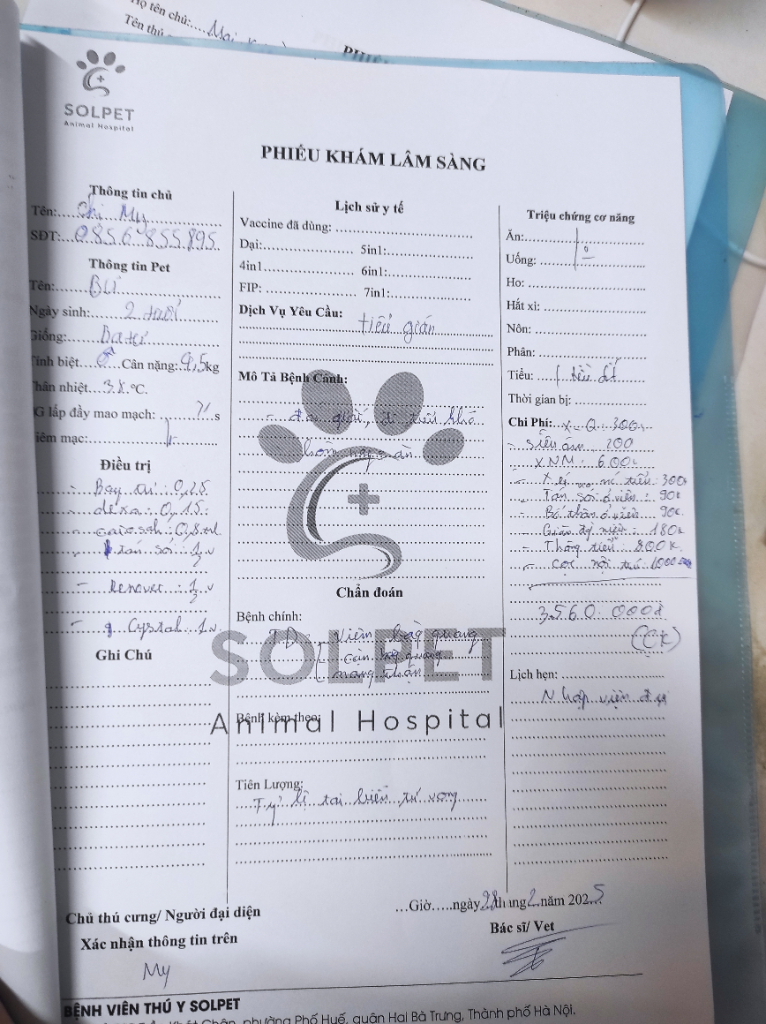 Họ tên chủ:
Tên thú
SOLPET
Animal Hospital
PHIẾU KHÁM LÂM SÀNG
Thông tin chủ
Tên: Chị My
SĐT: 0856 855 895
Thông tin Pet
Tên: Bư
Ngày sinh: 2 tuổi
Giống:
Tính biệt Cân nặng: 9,5kg
Thân nhiệt 38 °C.
G lấp đầy mao mạch: s
iêm mạc:
Điều trị
- : 0,25
- dexa : 0,15
: 0,8 ml
tán sỏi : 1 v
- Renovec : 1 v
- Cystal 1 v
Ghi Chú
Lịch sử y tế
Vaccine đã dùng:
Dại: 5in1:
4in1 6in1:
FIP: 7in1:
Dịch Vụ Yêu Cầu:
tiểu gián
Mô Tả Bệnh Cảnh:
- đi tiểu khó
hôm nay ăn
Chẩn đoán
Bệnh chính:
TD: Viêm bàng quang
cặn bàng quang
thận
SOLPET
Animal Hospital
Bệnh kèm theo:
Tiên Lượng:
Tỷ lệ tai biến, tử vong
Triệu chứng cơ năng
Ăn:
Uống:
Ho:
Hắt xì:
Nôn:
Phân:
Tiểu:
Thời gian bị:
Chi Phí: X-Q 300k
- siêu âm 200
- XNM : 600k
- tiểu 300k
- Tán sỏi 6 viên : 90k
- Bổ thận 6 viên : 90k
- : 180k
- Thông tiểu : 800k
- cọc nội trú 1000
3560 000đ
(CK)
Lịch hẹn:
Nhập viện
Chủ thú cưng/ Người đại diện
Xác nhận thông tin trên
My
…Giờ…..ngày 28 tháng 2 năm 2025
Bác sĩ/ Vet
BỆNH VIỆN THÚ Y SOLPET
Chân, phường Phố Huế, quận Hai Bà Trưng, Thành phố Hà Nội.